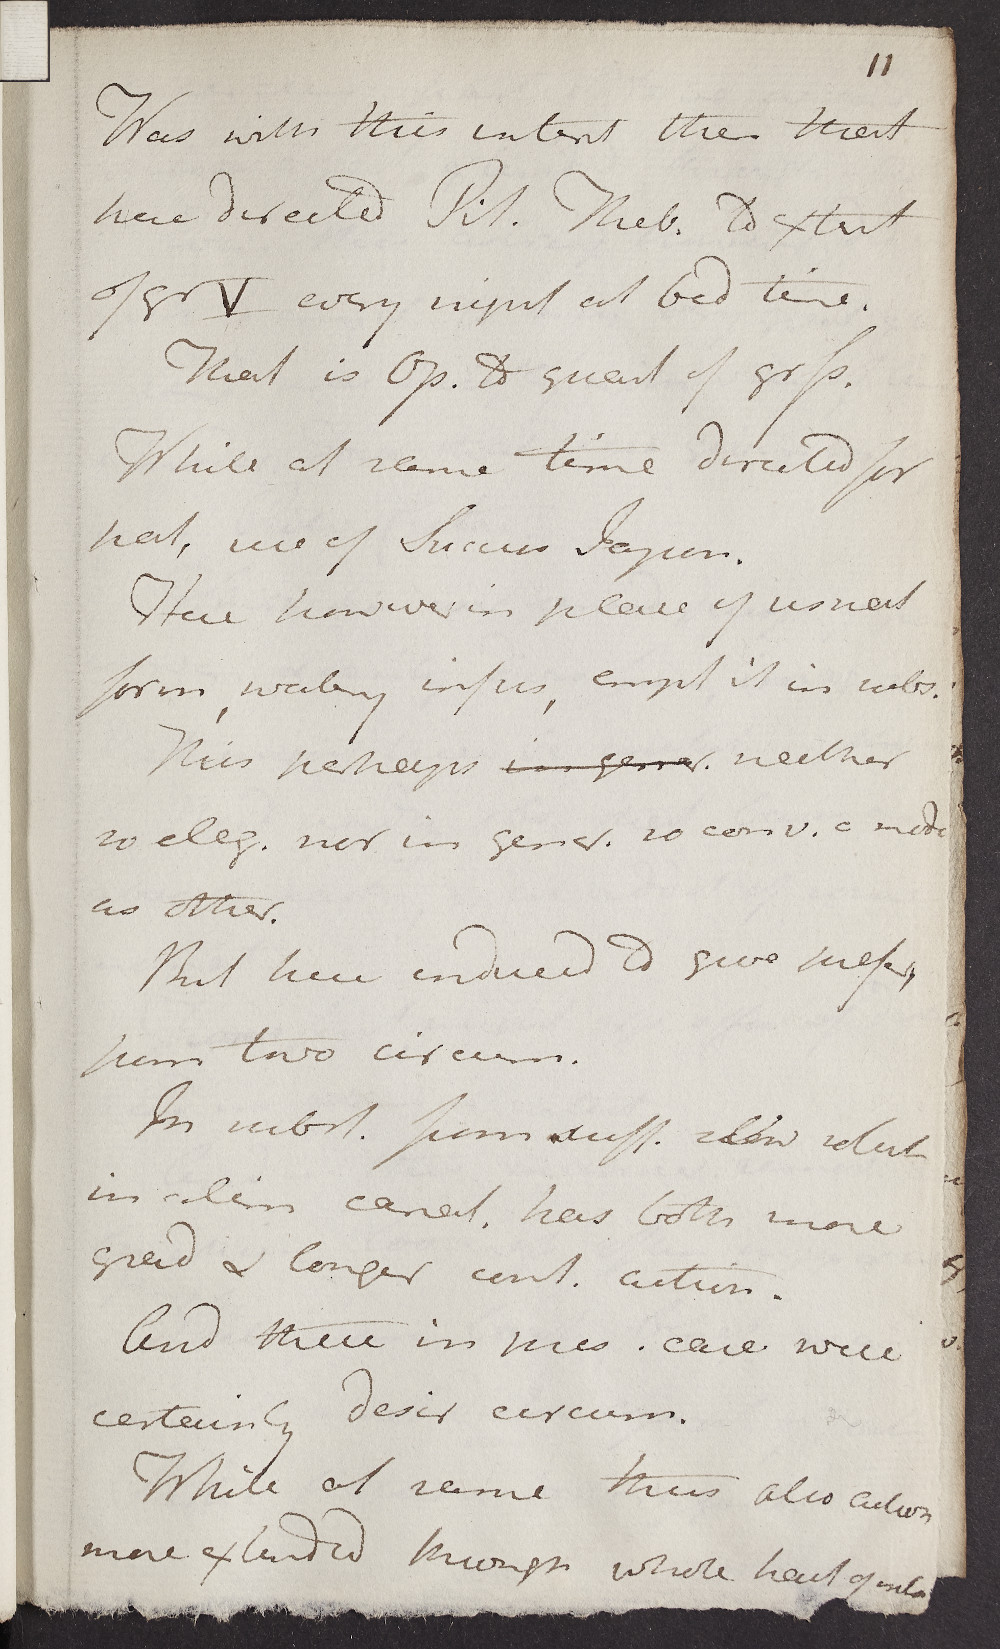 11
Was with this intent then that
here directed Pil. Theb. to extent
of gr V every night at bed time.
That is Op. to quant of gr ſs.
While at same time directed for
pat, use of Succus Japon.
Here however in place of usual
form, watery infus, empl it in subs.
This perhaps in gener. neither
so eleg. nor in gener. so conv. a mode
as other.
But here induced to give prefer,
from two circum.
In subst. from suff. slow solut
in alim canal, has both more
grad & longer cont. action.
And these in pres. case were
certainly desir circum.
While at same thus also action
more extended through whole tract of intes